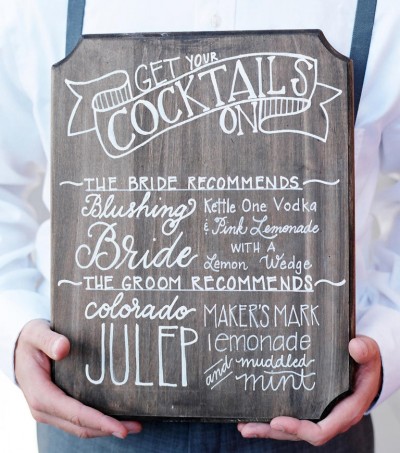 GET YOUR
COCKTAILS
ON
THE BRIDE RECOMMENDS
Blushing
Bride
Kettle One Vodka
& Pink Lemonade
WITH A
Lemon Wedge
THE GROOM RECOMMENDS
colorado
JULEP
MAKER'S MARK
lemonade
and muddled
mint